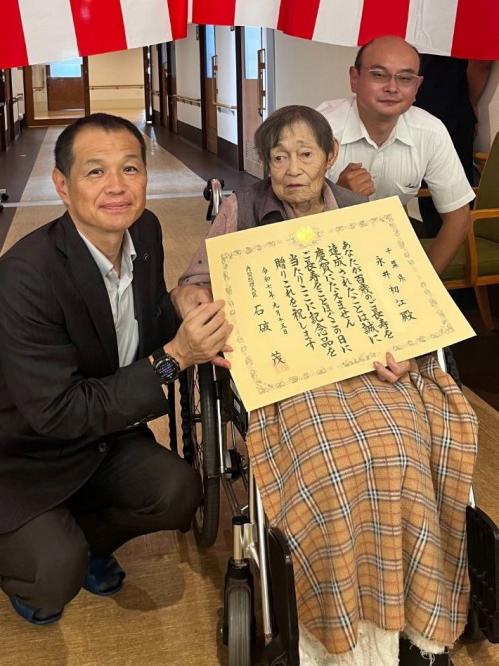 千葉県
永井初江殿
あなたが百歳のご長寿を
達成されたことは誠に
慶賀にたえません
ご長寿をことほぐこの日に
当たりここに記念品を
贈りこれを祝します
令和七年九月十五日
内閣総理大臣 石破 茂